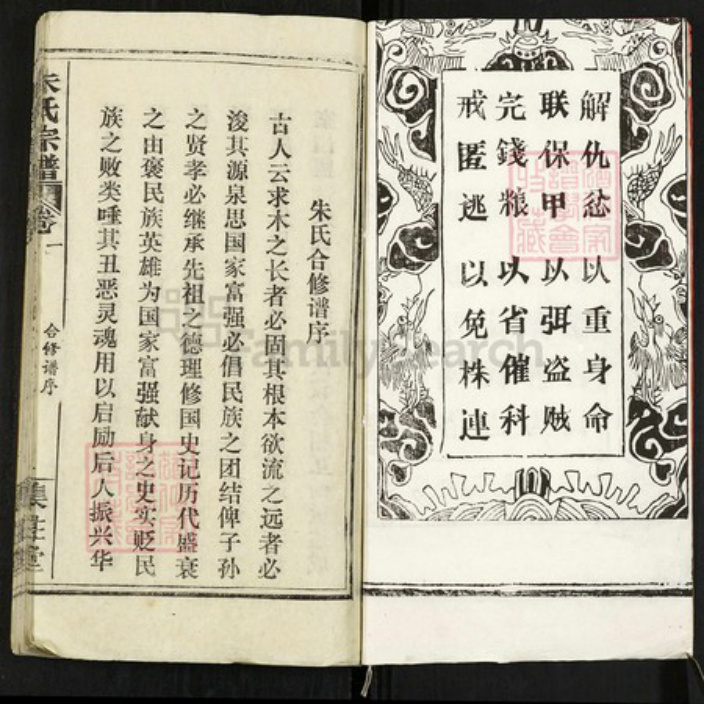 解仇忿以重身命
联保甲以弭盗贼
完錢粮以省催科
戒匿逃以免株連
朱氏合修谱序
古人云求木之长者必固其根本欲流之远者必
浚其源泉思国家富强必倡民族之团结俾子孙
之贤孝必继承先祖之德理修国史记历代盛衰
之由褒民族英雄为国家富强献身之史实贬民
族之败类唾其丑恶灵魂用以启励后人振兴华
朱氏宗谱
卷一
合修谱序
FamilySearch